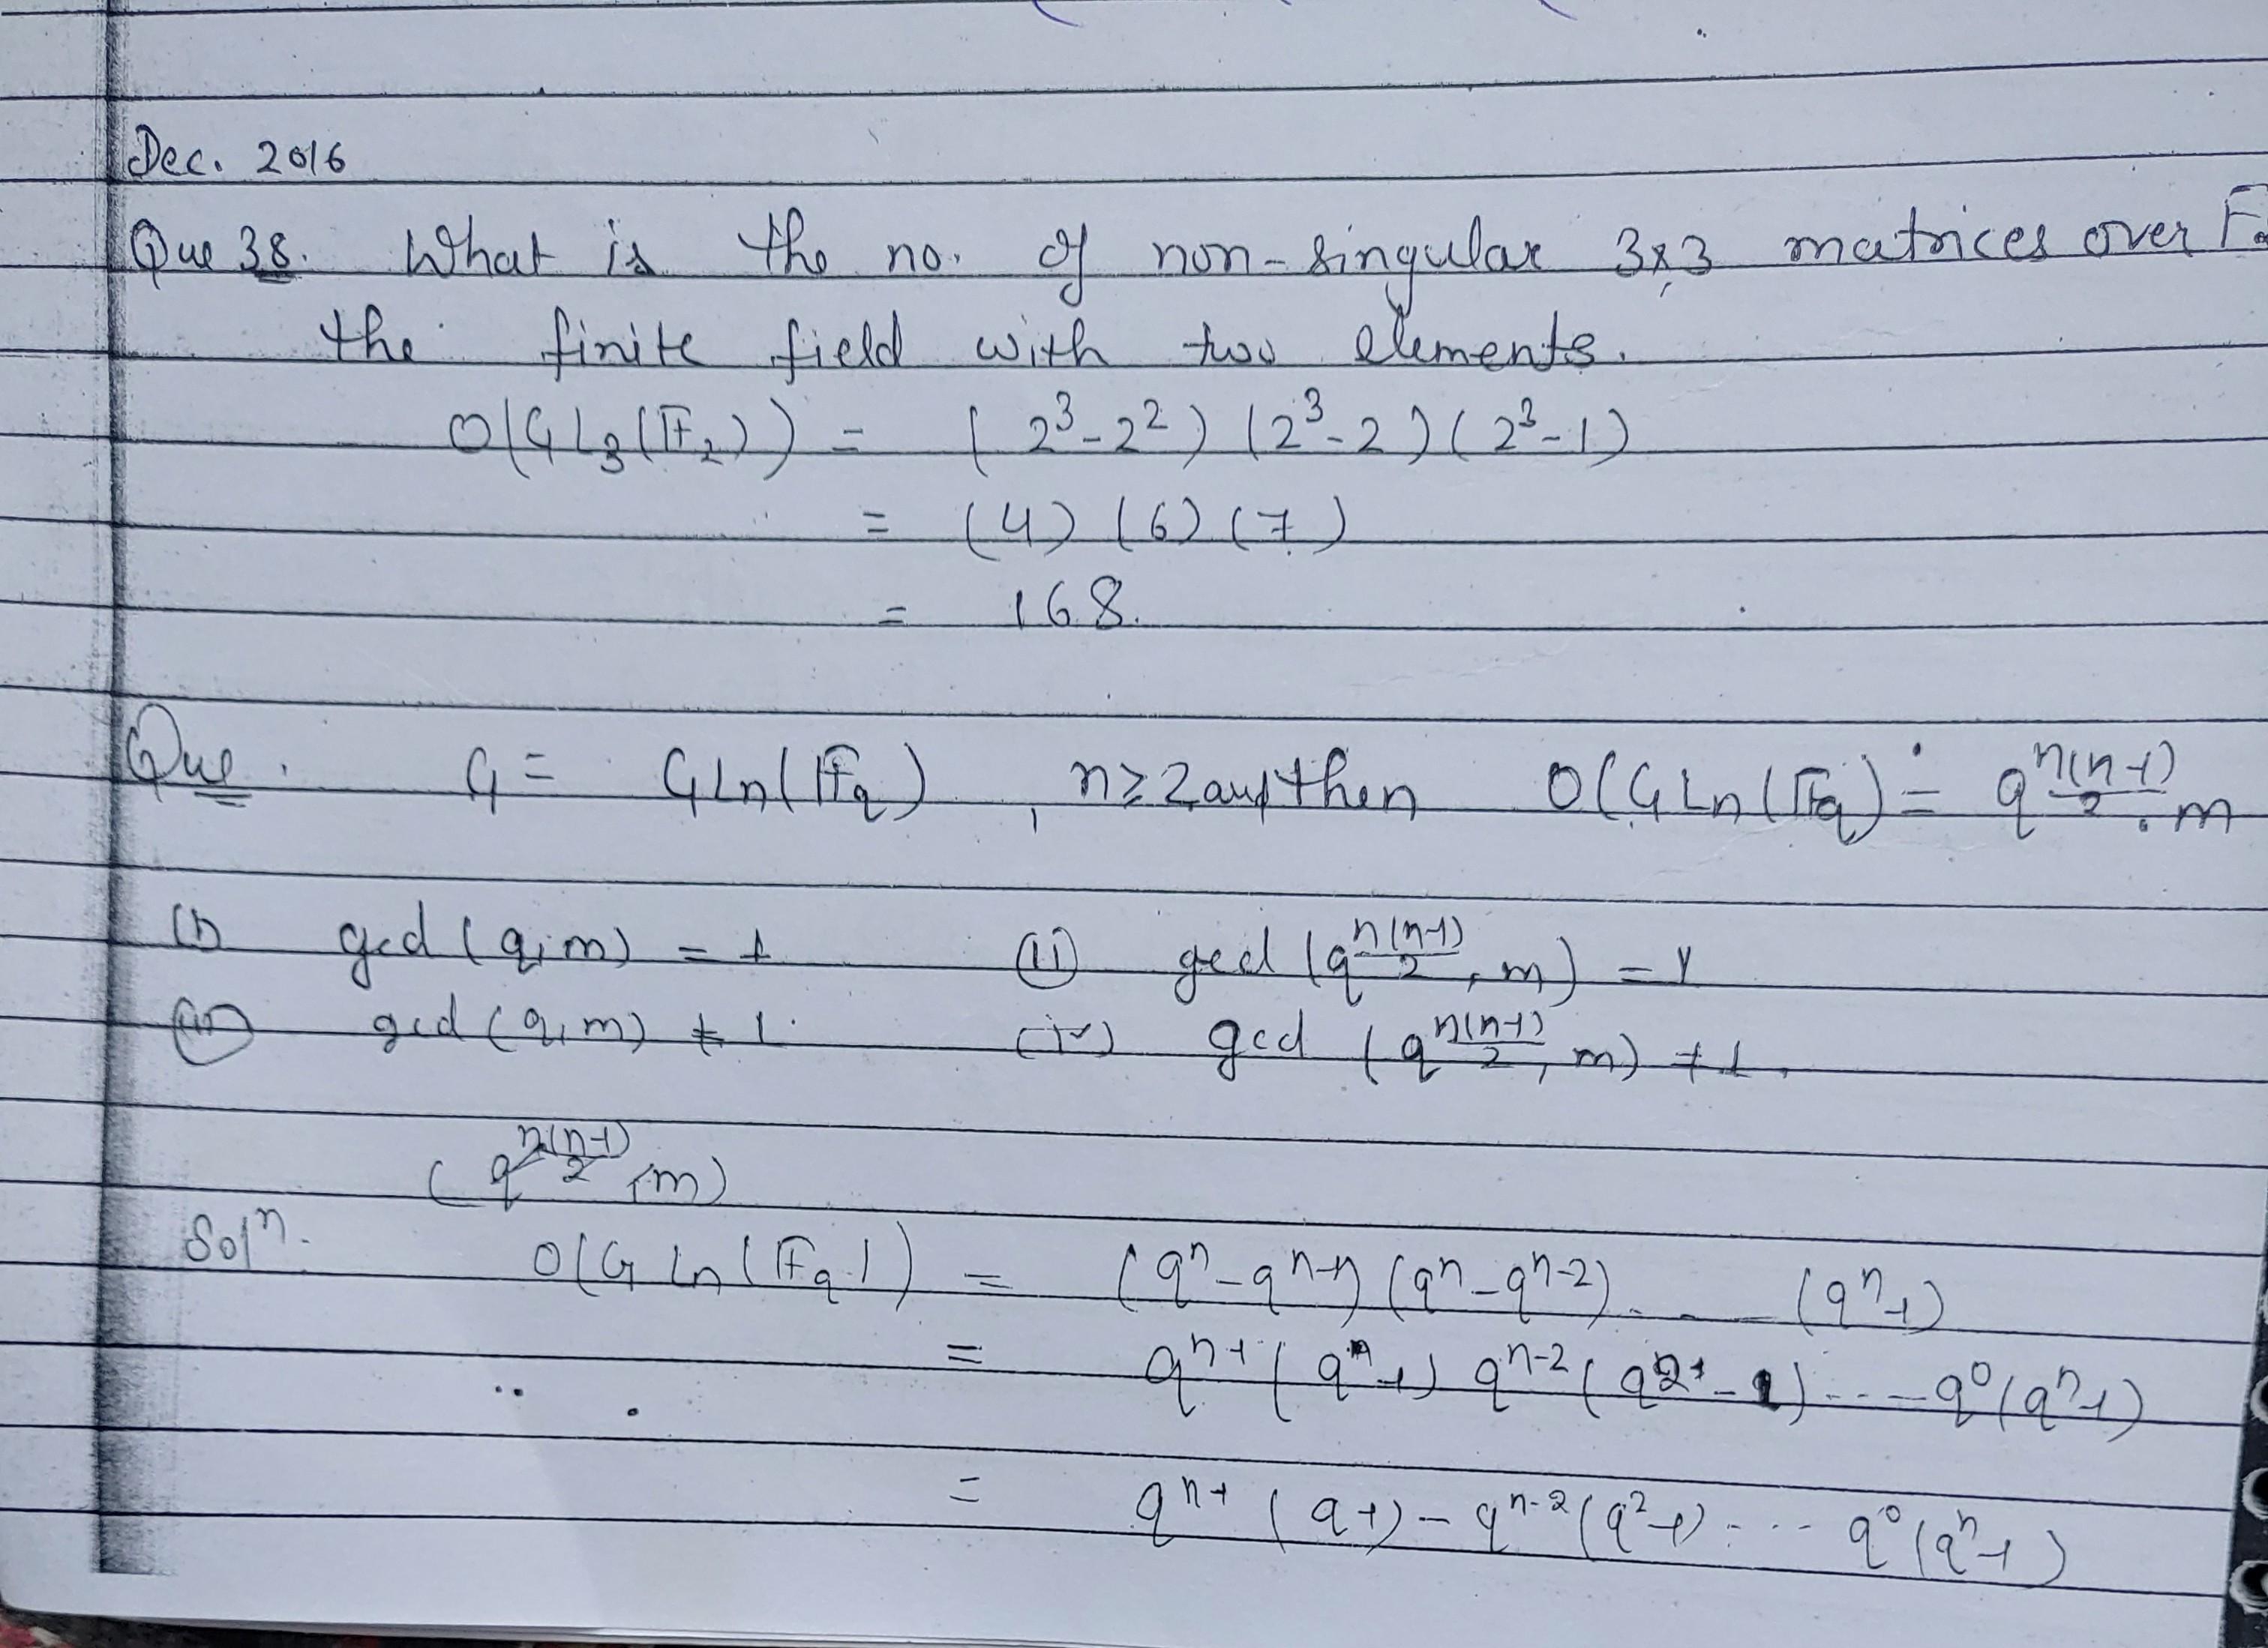 Dec. 2016
Que 38. What is the no. of non-singular 3x3 matrices over F
the finite field with two elements.
O(GL₃(𝔽₂)) = (2³-2²) (2³-2) (2³-1)
= (4) (6) (7)
= 168.
Que. G = GLn(𝔽q), n≥2 and then O(GLn(𝔽q) = q^(n(n-1)/2) . m
(i) gcd (q, m) = 1 (ii) gcd (q^(n(n-1)/2), m) = 1
(iii) gcd (q, m) ≠ 1. (iv) gcd (q^(n(n-1)/2), m) ≠ 1.
(q^(n(n-1)/2), m)
Solⁿ. O(GLn(𝔽q)) = (qⁿ-qⁿ⁻¹) (qⁿ-qⁿ⁻²) . - - (qⁿ-1)
= qⁿ⁻¹ ( -1) qⁿ⁻² (q² - 1) ... - q⁰(qⁿ-1)
= qⁿ⁻¹ (q-1) - qⁿ⁻² (q²-1) - ... q⁰(qⁿ-1)